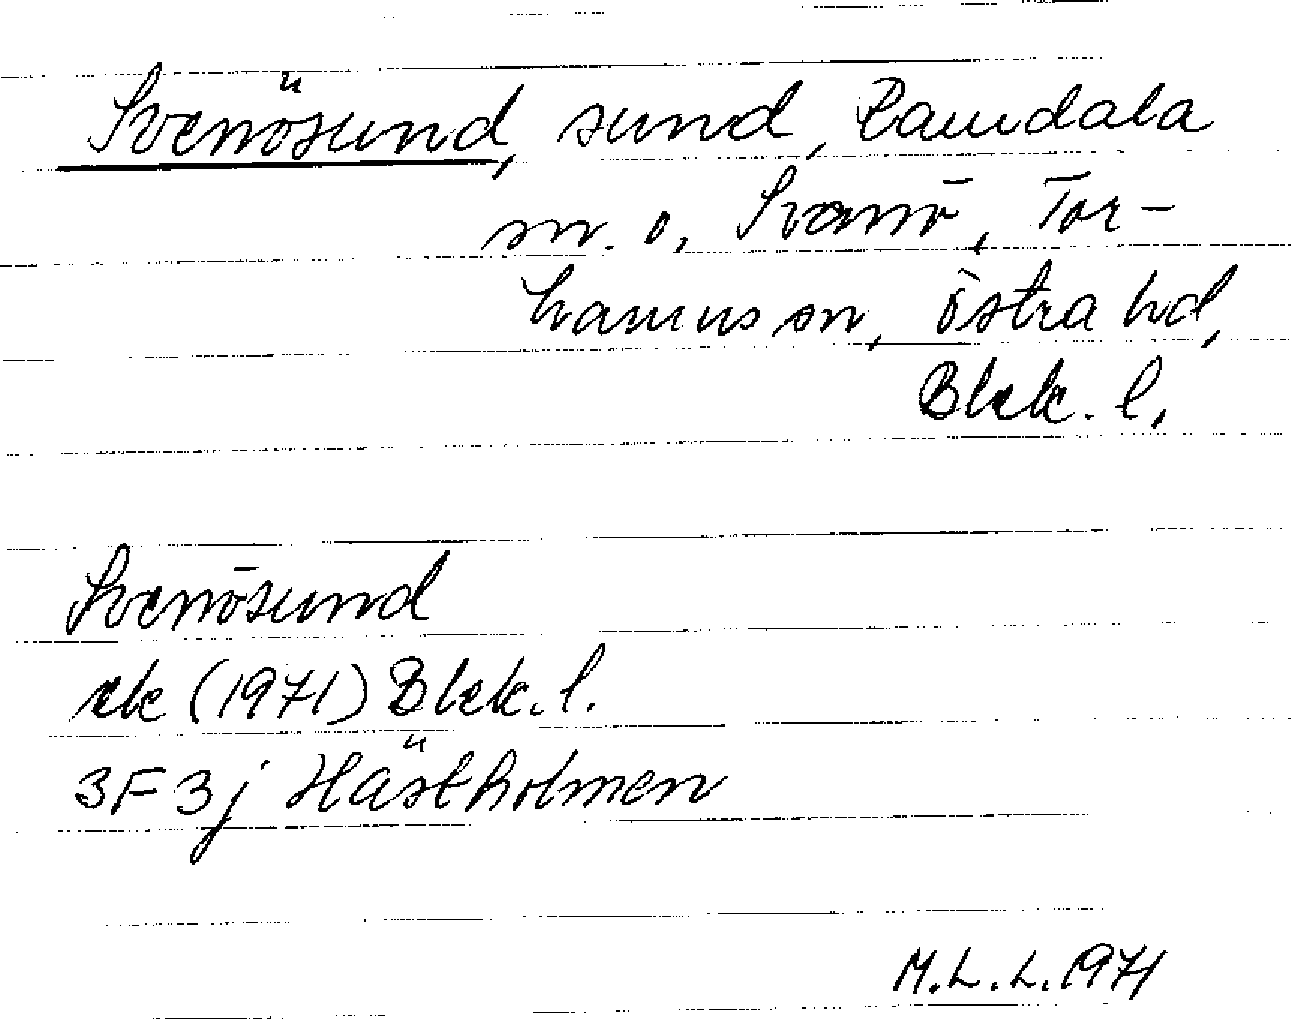 Svenösund, sund, Ramdala
sn. o. Svanö, Tor-
hamns sn, Östra hd,
Blek. l.
Svenösund
ek (1971) Blek. l.
3F3j Hästholmen
M.L.L. 1971